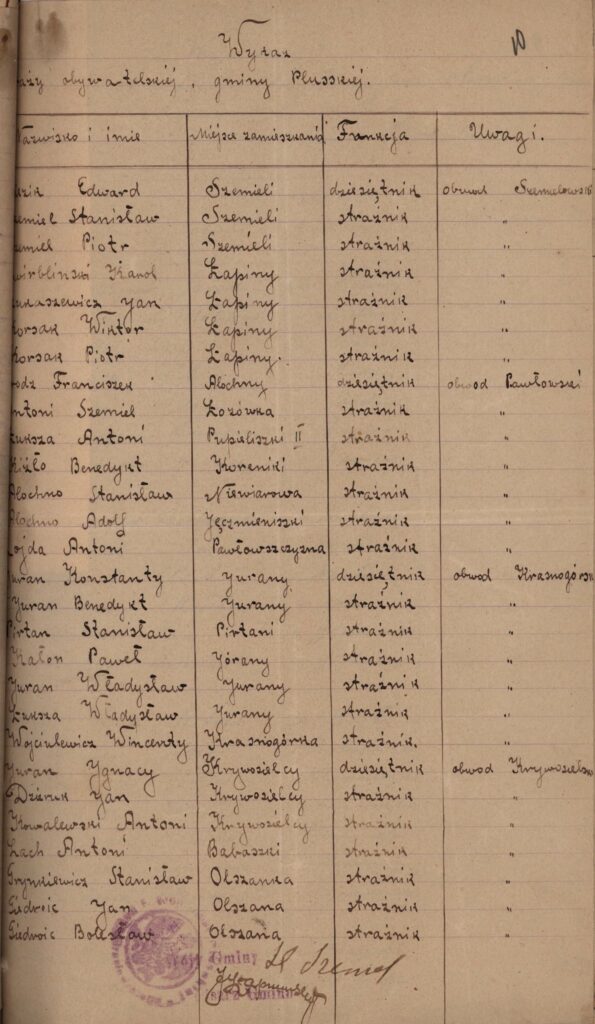 10
Wykaz
aży obywatelskiej, gminy Plusskiej.
Nazwisko i imie Miejsce zamieszkania Funkcja Uwagi.
zik Edward Szemieli dziesiętnik obwod Szemelowski
zemiel Stanisław Szemieli strażnik "
zemiel Piotr Szemieli strażnik "
wirbliński Karol Łapiny strażnik "
ukaszewicz Jan Łapiny strażnik "
Korsak Wiktor Łapiny strażnik "
Korsak Piotr Łapiny. strażnik "
odz Franciszek Błochny dziesiętnik obwod Pawłowski
ntoni Szemiel Łozówka strażnik "
Łuksza Antoni Pupieliszki II strażnik "
Kizło Benedykt Koreniki strażnik "
Błochno Stanisław Niewiarowa strażnik "
Błochno Adolf Jęczmieniszki strażnik "
ojda Antoni Pawłowszczyzna strażnik "
Juran Konstanty Jurany dziesiętnik obwod Krasnogórsk
Juran Benedykt Jurany strażnik "
Pirtan Stanisław Pirtani strażnik "
Kałon Paweł Jórany strażnik "
Juran Władysław Jurany strażnik "
Łuksza Władysław Jurany strażnik "
Wojciulewicz Wincenty Krasnogórka strażnik. "
Juran Ygnacy Krywosielcy dziesiętnik obwod Krywosielski
Dzieruk Jan Krywosielcy strażnik "
Kowalewski Antoni Krywosielcy strażnik "
Łach Antoni Babaszki strażnik "
Grynkiewicz Stanisław Olszanka strażnik "
Giedroic Jan Olszana strażnik "
Giedroic Bolesław Olszana strażnik "
Wójt Gminy